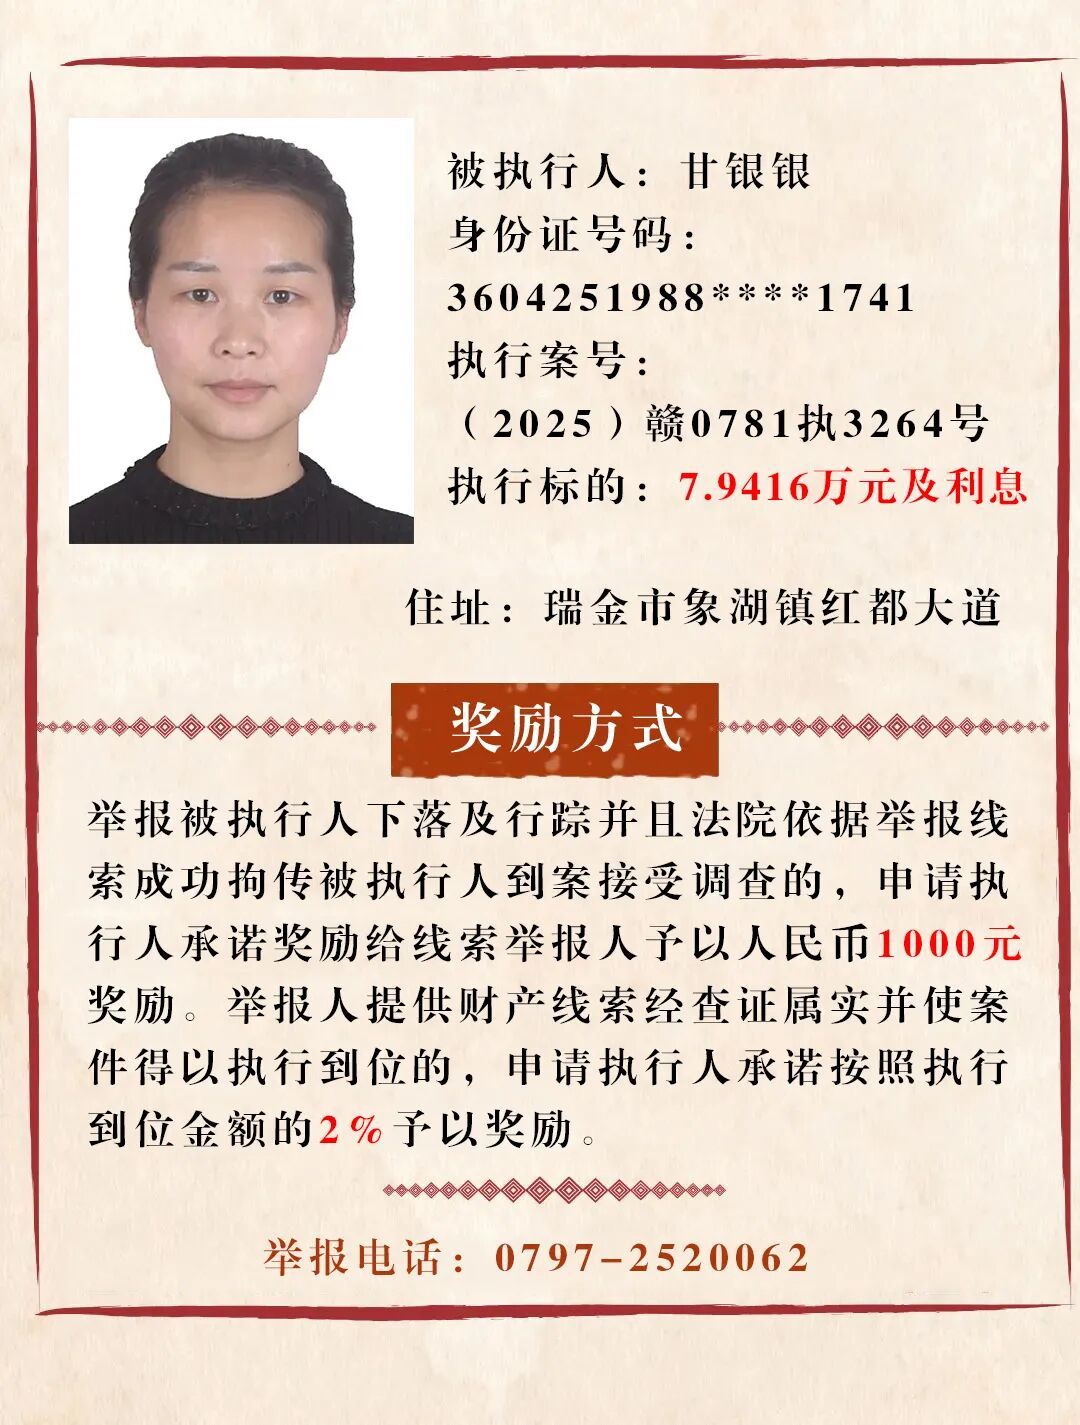 被执行人：甘银银
身份证号码：
3604251988****1741
执行案号：
（2025）赣0781执3264号
执行标的：7.9416万元及利息
住址：瑞金市象湖镇红都大道
奖励方式
举报被执行人下落及行踪并且法院依据举报线
索成功拘传被执行人到案接受调查的，申请执
行人承诺奖励给线索举报人予以人民币1000元
奖励。举报人提供财产线索经查证属实并使案
件得以执行到位的，申请执行人承诺按照执行
到位金额的2%予以奖励。
举报电话：0797-2520062